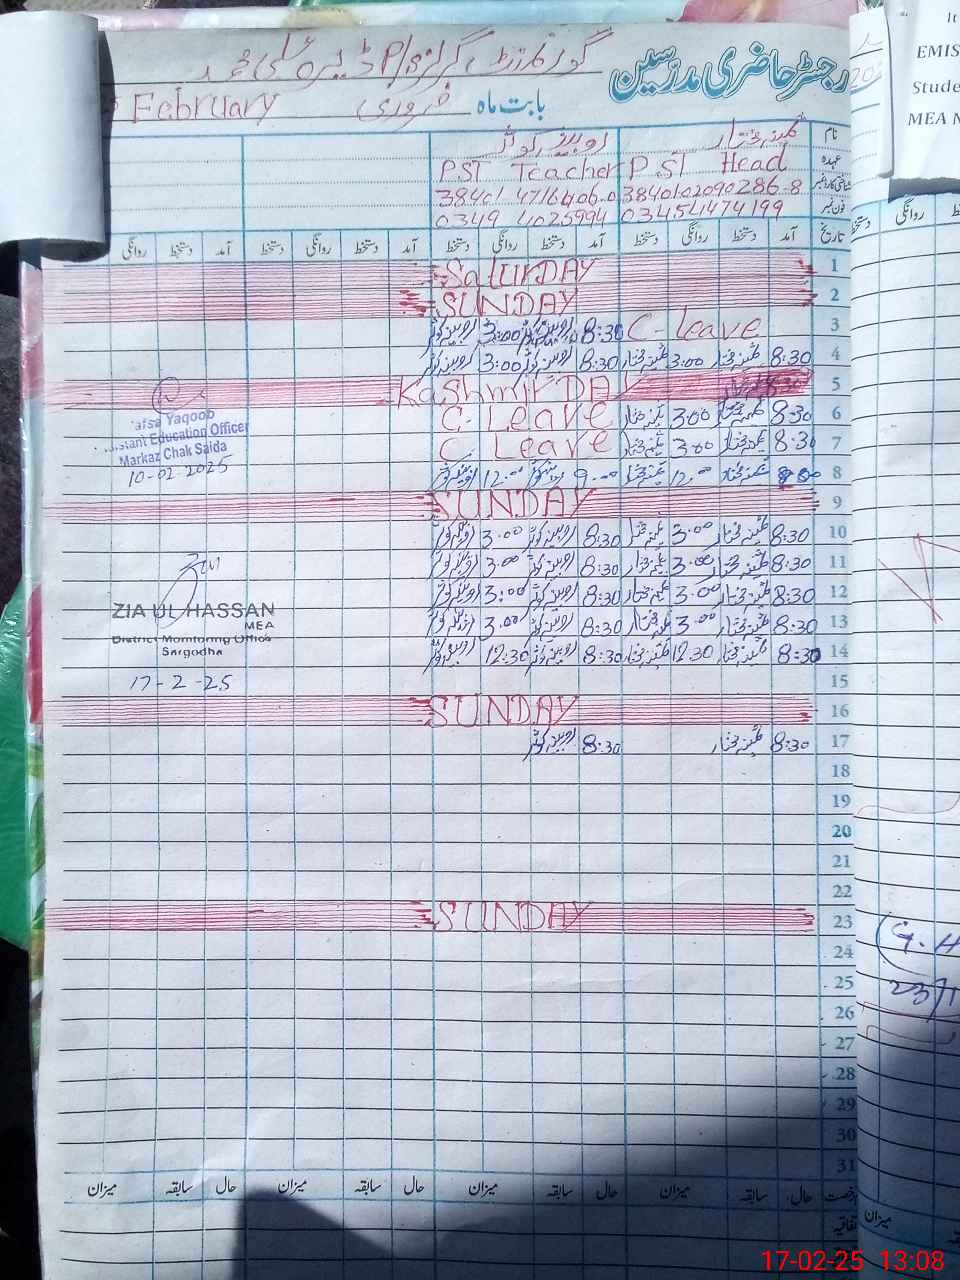 رجسٹر حاضری مدرسین
گورنمنٹ گرلز P/S ڈیرہ علی محمد
بابت ماہ فروری February
نام ثمینہ مختار روبینہ کوثر
عہدہ PST Head PST Teacher
شناختی کارڈ نمبر 3840102090286-8 38401 4716406-0
فون نمبر 03454174199 0349 4025994
تاریخ آمد دستخط روانگی دستخط آمد دستخط روانگی دستخط آمد دستخط روانگی دستخط آمد دستخط روانگی
1 SaturDAY
2 SUNDAY
3 C-leave 8:30 روبینہ کوثر 3:00 روبینہ کوثر
4 8:30 ثمینہ مختار 3:00 ثمینہ مختار 8:30 روبینہ کوثر 3:00 روبینہ کوثر
5 Kashmir DAY
6 8:30 ثمینہ مختار 3:00 ثمینہ مختار C-Leave
7 8:30 ثمینہ مختار 3:00 ثمینہ مختار C Leave
8 ثمینہ مختار 12:00 ثمینہ مختار 9:00 روبینہ کوثر 12:00 روبینہ کوثر
9 SUNDAY
10 8:30 ثمینہ مختار 3:00 ثمینہ مختار 8:30 روبینہ کوثر 3:00 روبینہ کوثر
11 8:30 ثمینہ مختار 3:00 ثمینہ مختار 8:30 روبینہ کوثر 3:00 روبینہ کوثر
12 8:30 ثمینہ مختار 3:00 ثمینہ مختار 8:30 روبینہ کوثر 3:00 روبینہ کوثر
13 8:30 ثمینہ مختار 3:00 ثمینہ مختار 8:30 روبینہ کوثر 3:00 روبینہ کوثر
14 8:30 ثمینہ مختار 12:30 ثمینہ مختار 8:30 روبینہ کوثر 12:30 روبینہ کوثر
15
16 SUNDAY
17 8:30 ثمینہ مختار 8:30 روبینہ کوثر
18
19
20
21
22
23 SUNDAY
24
25
26
27
28
29
30
31
حال سابقہ میزان حال سابقہ میزان حال سابقہ میزان حال سابقہ میزان
Yaqoob
Education Officer
Markaz Chak Saida
10-02-2025
ZIA UL HASSAN
MEA
District Monitoring Office
Sargodha
17-2-25
It
EMIS
Stude
MEA N
روانگی دستخط
G.H
23/1
میزان
17-02-25 13:08